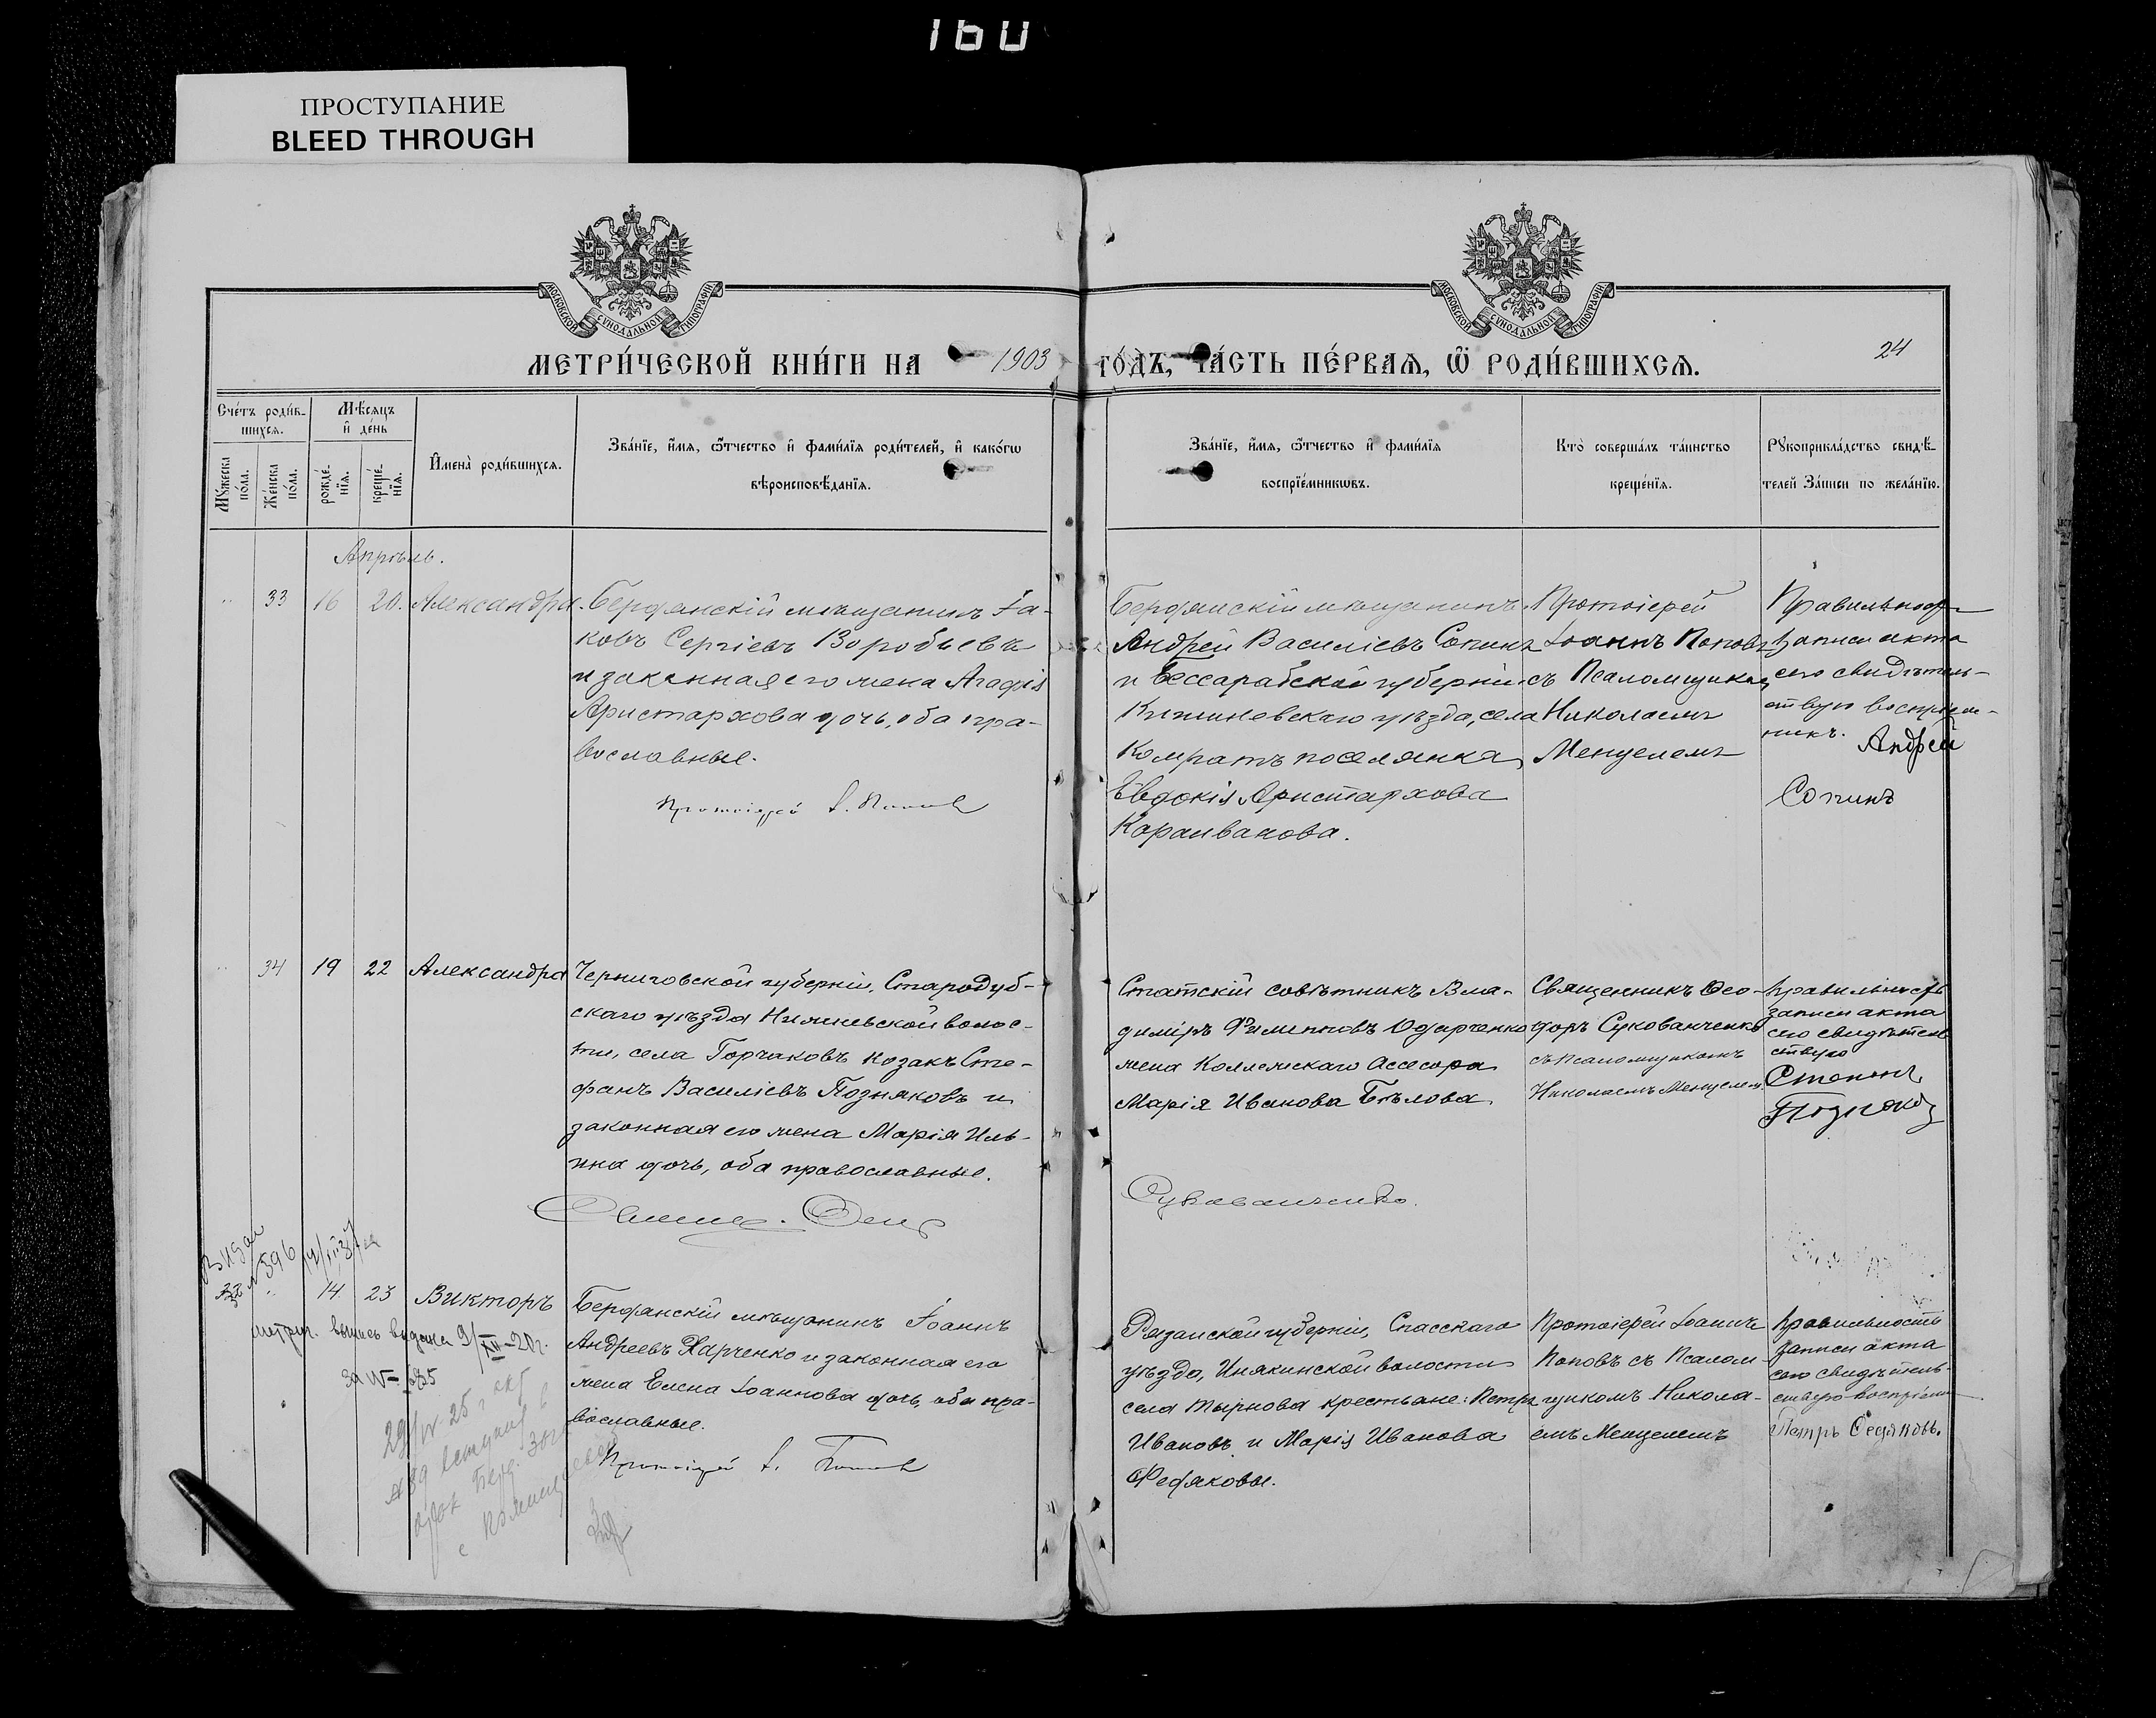 160
ПРОСТУПАНИЕ
BLEED THROUGH
МОСКОВСКОЙ СѴНОДАЛЬНОЙ ТИПОГРАФІИ
МОСКОВСКОЙ СѴНОДАЛЬНОЙ ТИПОГРАФІИ
МЕТРИ́ЧЕСКОЙ КНИ́ГИ НА 1903 ГО́ДЪ, ЧА́СТЬ ПЕ́РВАѦ, Ѿ РОДИ́ВШИХСѦ.
24
Сче́тъ роди́в-
шихсѧ.
Мꙋжеска
по́ла.
Же́нска
по́ла.
Мѣ́сѧцъ
и҆ де́нь
рожде́-
нїѧ.
креще́-
нїѧ.
И҆мена̀ роди́вшихсѧ.
Зва́нїе, и҆́мѧ, ѻ҆́тчество и҆ фами́лїѧ роди́телей, и҆ како́гѡ
вѣроисповѣ́данїѧ.
Зва́нїе, и҆́мѧ, ѻ҆́тчество и҆ фами́лїѧ
воспрїе́мникѡвъ.
Кто̀ соверша́лъ та́инство
креще́нїѧ.
Рꙋкоприкла́дство свидѣ́-
телей За́писи по жела́нїю.
Апрѣль.
33 16 20. Александра.
Бердянскій мѣщанинъ Іа-
ковъ Сергіевъ Воробьевъ
и законная его жена Агафія
Аристархова дочь, оба пра-
вославные.
Протоіерей І. Поповъ
Бердянскій мѣщанинъ
Андрей Василіевъ Сопинъ
и Бессарабской губерніи
Кишиневскаго уѣзда, села
Комратъ поселянка
Евдокія Аристархова
Караиванова.
Протоіерей
Іоаннъ Поповъ
съ Псаломщикомъ
Николаемъ
Менцелемъ
Правильность
записи акта
сего свидѣтель-
ствую воспріем-
никъ.
Андрей
Сопинъ
34 19 22 Александра
Черниговской губерніи, Стародуб-
скаго уѣзда волос-
ти, села Горчаковъ козакъ Сте-
фанъ Василіевъ Позняковъ и
законная его жена Марія Иль-
ина дочь, оба православные.
Статскій совѣтникъ Вла-
диміръ Филипповъ Одарченко
жена Коллежскаго Ассесора
Марія Иванова Бѣлова.
Сукованченко.
Священникъ Ѳео-
доръ Сукованченко
съ Псаломщикомъ
Николаемъ Менцелем
Правильность
записи акта
сего свидѣтель
ствую
Степанъ
Позняковъ
14 23 Викторъ
метрич. выпись выдана 9/XII-20г.
за №
Бердянскій мѣщанинъ Іоаннъ
Андреевъ Харченко и законная его
жена Елена Іоаннова дочь, оба пра-
вославные.
Протоіерей І. Поповъ
Рязанской губерніи, Спасскаго
уѣзда, Инякинской волости
села Тырнова крестьяне: Петръ
Ивановъ и Марія Иванова
Федяковы.
Протоіерей Іоаннъ
Поповъ съ Псалом-
щикомъ Никола-
емъ Менцелемъ
Правильность
записи акта
сего свидѣтель-
ствую воспріемн
Петръ Федяковъ.